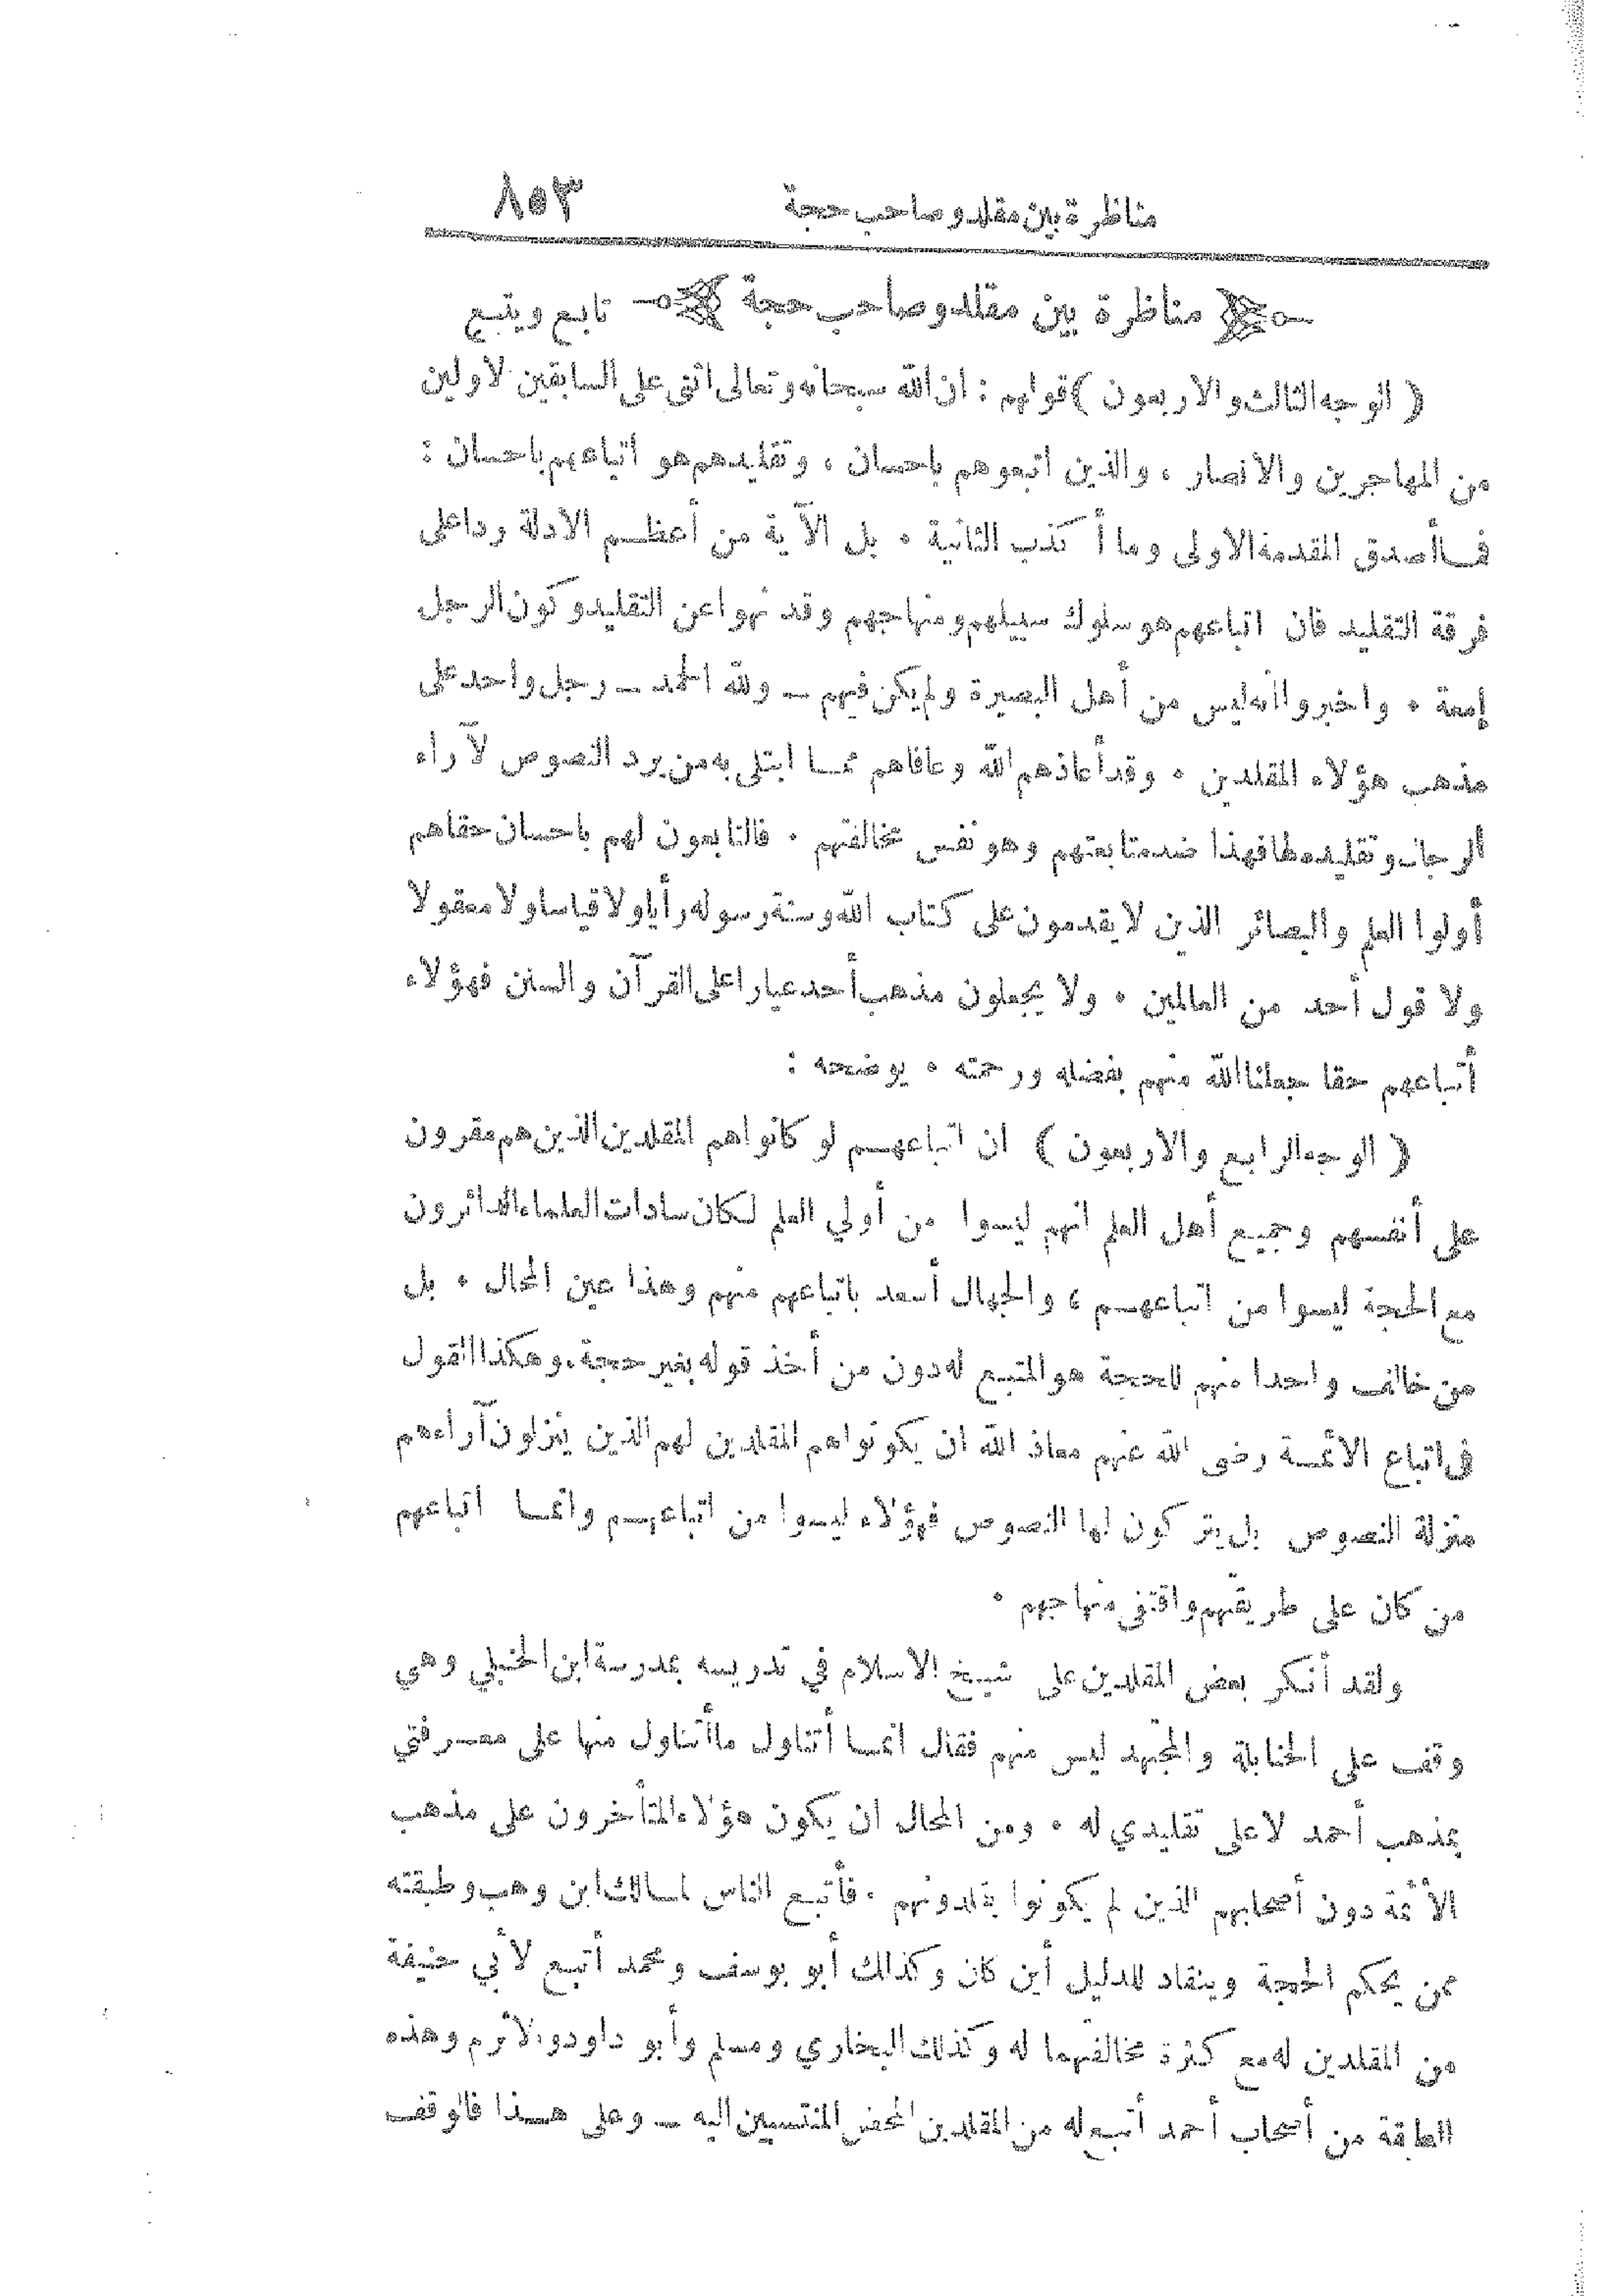 مناظرة بين مقلد وصاحب حجة ٨٥٣
مناظرة بين مقلد وصاحب حجة تابع ويتبع
( الوجه الثالث والاربعون ) قولهم : ان الله سبحانه وتعالى اثنى على السابقين لاولين
من المهاجرين والانصار ، والذين اتبعوهم باحسان ، وتقليدهم هو أتباعهم باحسان :
فما أصدق المقدمة الاولى وما أكذب الثانية . بل الآية من أعظم الادلة ردا على
فرقة التقليد فان اتباعهم هو سلوك سبيلهم ومنهاجهم وقد نهوا عن التقليد وكون الرجل
إمعة . واخبروا انه ليس من أهل البصيرة ولم يكن فيهم ــ ولله الحمد ــ رجل واحد على
مذهب هؤلاء المقلدين . وقد أعاذهم الله وعافاهم مما ابتلي به من يرد النصوص لآراء
الرجال وتقليدها فهذا ضد متابعتهم وهو نفس مخالفتهم . فالتابعون لهم باحسان حقاهم
أولوا العلم والبصائر الذين لا يقدمون على كتاب الله وسنة رسوله رأيا ولا قياسا ولا معقولا
ولا قول أحد من العالمين . ولا يجعلون مذهب أحد عيارا على القرآن والسنن فهؤلاء
أتباعهم حقا جعلنا الله منهم بفضله ورحمته . يوضحه :
( الوجه الرابع والاربعون ) ان اتباعهم لو كانوا هم المقلدين الذين هم مقرون
على أنفسهم وجميع أهل العلم انهم ليسوا من أولي العلم لكان سادات العلماء الدائرون
مع الحجة ليسوا من اتباعهم ، والجهال أسعد باتباعهم منهم وهذا عين المحال . بل
من خالف واحدا منهم للحجة هو المتبع له دون من أخذ قوله بغير حجة، وهكذا القول
في اتباع الأئمة رضي الله عنهم معاذ الله ان يكونوا هم المقلدين لهم الذين ينزلون آراءهم
منزلة النصوص بل يتركون لها النصوص فهؤلاء ليسوا من اتباعهم وانما اتباعهم
من كان على طريقتهم واقتفى منهاجهم .
ولقد أنكر بعض المقلدين على شيخ الاسلام في تدريسه بمدرسة ابن الحنبلي وهي
وقف على الحنابلة والمجتهد ليس منهم فقال انما أتناول ما أتناول منها على معرفتي
بمذهب أحمد لا على تقليدي له . ومن المحال ان يكون هؤلاء المتأخرون على مذهب
الأئمة دون أصحابهم الذين لم يكونوا يقلدونهم . فأتبع الناس لمالك ابن وهب وطبقته
ممن يحكم الحجة وينقاد للدليل أين كان وكذلك أبو يوسف ومحمد أتبع لأبي حنيفة
من المقلدين له مع كثرة مخالفتهما له وكذلك البخاري ومسلم وأبو داود والاثرم وهذه
الطبقة من أصحاب أحمد أتبع له من المقلدين المحض المنتسبين اليه ــ وعلى هذا فالوقف